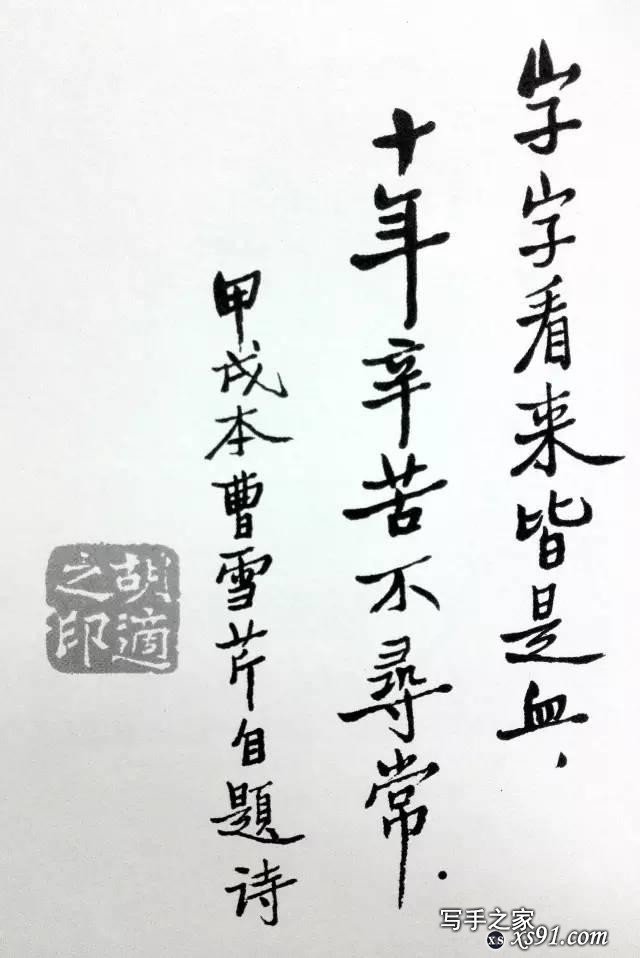 字字看来皆是血，
十年辛苦不尋常．
甲戌本曹雪芹自題诗
胡適之印
写手之家
xs xs91.com